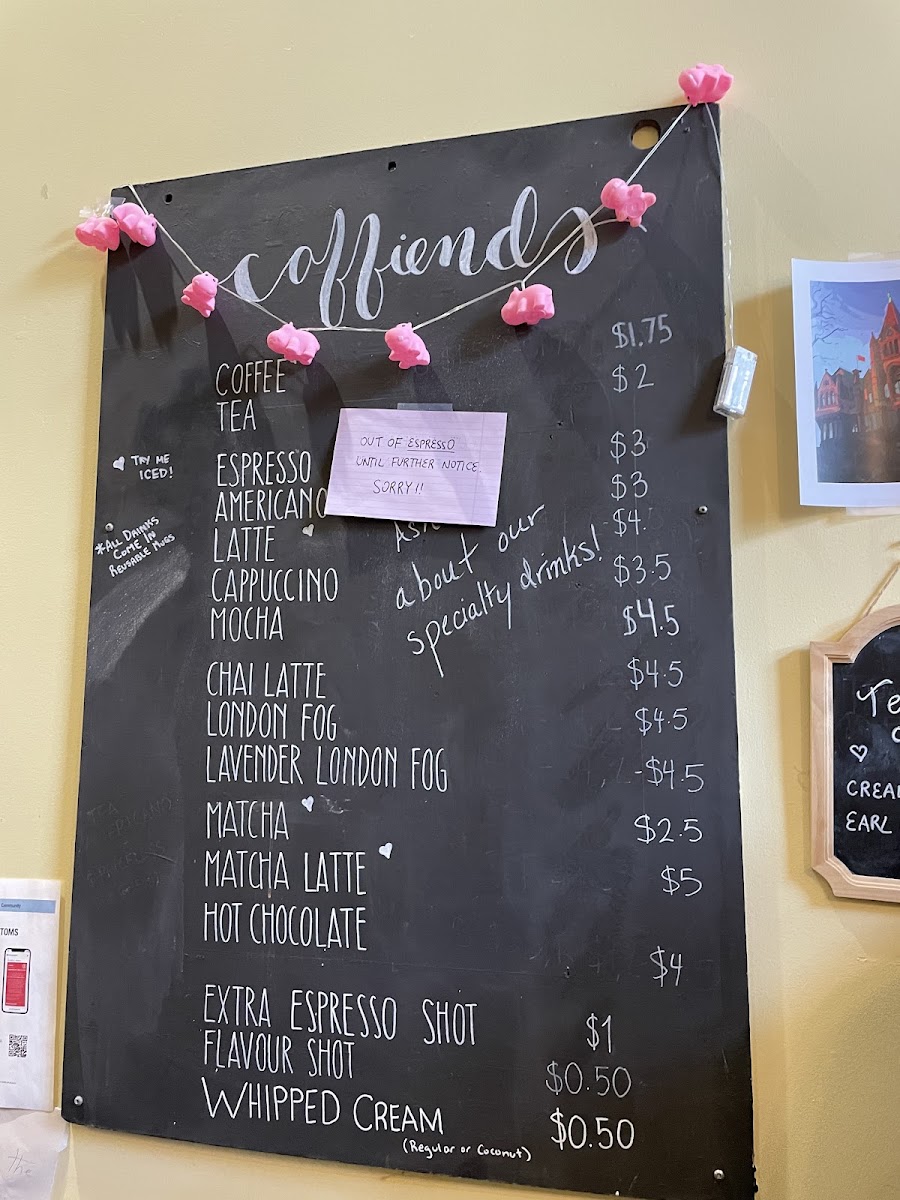 coffiends
COFFEE $1.75
TEA $2
OUT OF ESPRESSO
UNTIL FURTHER NOTICE.
SORRY!!
TRY ME
ICED!
*ALL DRINKS
COME IN
REUSABLE MUGS
ESPRESSO $3
AMERICANO $3
LATTE $4.
CAPPUCCINO $3.5
MOCHA $4.5
Ask
about our
specialty drinks!
CHAI LATTE $4.5
LONDON FOG $4.5
LAVENDER LONDON FOG -$4.5
MATCHA $2.5
MATCHA LATTE $5
HOT CHOCOLATE $4
EXTRA ESPRESSO SHOT $1
FLAVOUR SHOT $0.50
WHIPPED CREAM $0.50
(Regular or Coconut)
Te
CREA
EARL
Community
TOMS
the